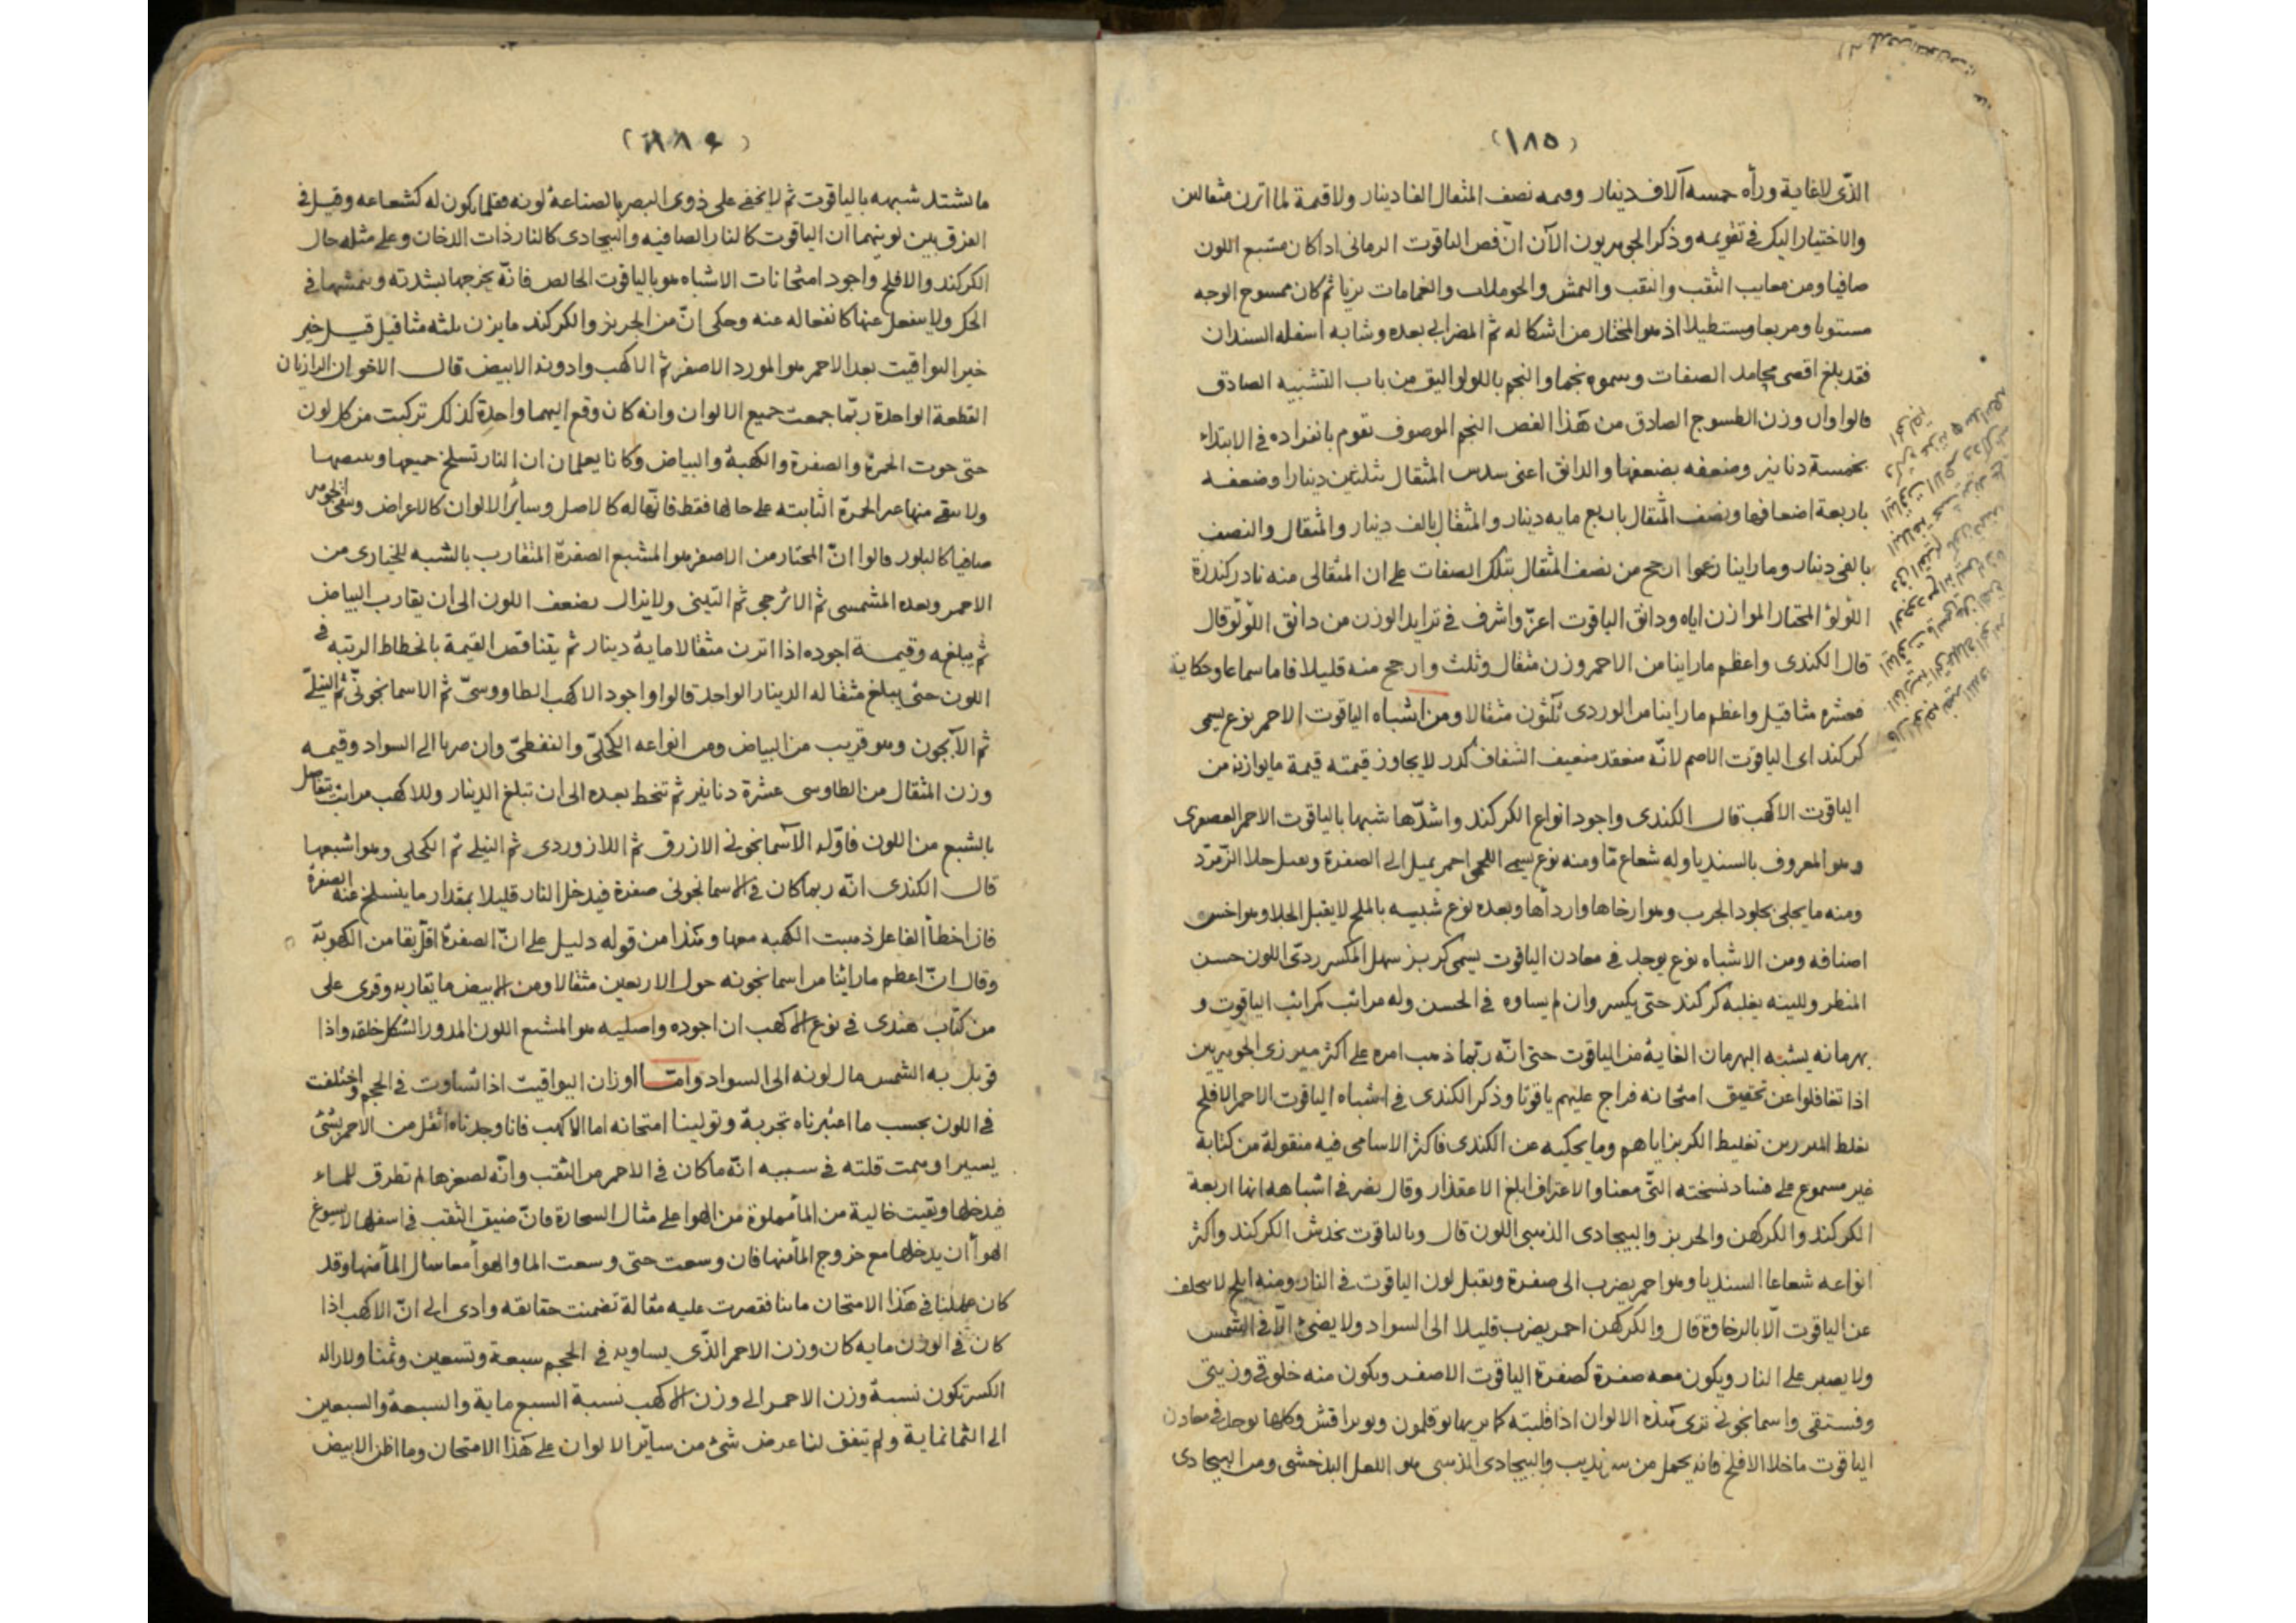 (١٨٥)
الذّى لاغاية ورأه خمسه آلاف دينار وقيمه نصف المثقال الفا دينار ولا قيمة لما اتزن مثقالين
والاختيار اليك فى تقويمه وذكر الجوهريون الآن انّ فص الياقوت الرمانى اذا كان مشبع اللون
صافيا ومن معايب الثقب والنقب والنمش والحرملات والغمامات بريا ثم كان ممسوح الوجه
مستويا ومربعا ومستطيلا اذ هو المختار من اشكاله ثم المضرابى بعده وشابه اسفله السندان
فقد بلغ اقصى محامد الصفات وسموه نجما والنجم باللولو اليق من باب التشبيه الصادق
قالوا وان وزن الطسوج الصادق من هذا الفص النجم الموصوف تقوم بانفراده فى الابتداء
بخمسة دنانير وضعفه بضعفها والدانق اعنى سدس المثقال بثلثين دينارا وضعفه
باربعة اضعافها ونصف المثقال باربع مايه دينار والمثقال بالف دينار والمثقال والنصف
بالفى دينار وما راينا زعموا ارجح من نصف المثقال بتلك الصفات على ان المثقالى منه نادر كندرة
اللؤلؤ المختار الموازن اياه ودانق الياقوت اعزّ واشرف فى تزايد الوزن من دانق اللؤلؤ قال
قال الكندى واعظم ما راينا من الاحمر وزن مثقال وثلث وارجح منه قليلا فاما سماعا وحكاية
فعشره مثاقيل واعظم ما راينا من الوردى ثلثون مثقالا ومن اشباه الياقوت الاحمر نوع يسمى
كركند اى الياقوت الاصم لانّه منعقد ضعيف الشفاف كدر لا يجاوز قيمته قيمة ما يوازنه من
الياقوت الاكهب قال الكندى واجود انواع الكركند واشدّها شبها بالياقوت الاحمر العصفرى
وهو المعروف بالسنديا وله شعاع مّا ومنه نوع يسمى اللحمى احمر يميل الى الصفرة ويعمل جلا الزمرّد
ومنه ما يجلى بجلود الجرب وهو ارخاها وارداها وبعده نوع شبيه بالملح لا يقبل الجلا وهو اخس
اصنافه ومن الاشباه نوع يوجد فى معادن الياقوت يسمى كربز سهل المكسر ردىّ اللون حسن
المنظر وللينه يغلبه كركند حتى يكسر وان لم يساوه فى الحسن وله مراتب كمراتب الياقوت و
بهرمانه يشبه البهرمان الغاية من الياقوت حتى انّه ربّما ذهب امره على اكثر مبرزى الجوهريين
اذا تغافلوا عن تحقيق امتحانه فراج عليهم ياقوتا وذكر الكندى فى اشباه الياقوت الاحمر الافلح
يغلط المبرزين تغليط الكربز اياهم وما يحكيه عن الكندى فاكثر الاسامى فيه منقولة من كتابه
غير مسموع على فساد نسخته التى معنا والاعتراف ابلغ الاعتذار وقال نصر فى اشباهه انها اربعة
الكركند والكركهن والجربز والبيجادى الذهبى اللون قال وبالياقوت يخدش الكركند واكثر
انواعه شعاعا السنديا وهو احمر يضرب الى صفرة ويقبل لون الياقوت فى النار ومنه ابلج لا يتخلف
عن الياقوت الّا بالرخاوة قال والكركهن احمر يضرب قليلا الى السواد ولا يضئ الّا فى الشمس
ولا يصبر على النار ويكون معه صفرة كصفرة الياقوت الاصفر ويكون منه خلوقى وزيتى
وفستقى واسمانجونى ترى هذه الالوان اذا قلبته كما يريها بوقلمون وبوبراقش وكلها يوجد فى معادن
الياقوت ما خلا الافلح فانه يحمل من سرنديب والبيجادى الذهبى هو اللعل البدخشى ومن البيجادى
(١٨٦)
ما يشتد شبهه بالياقوت ثم لا يخفى على ذوى البصر بالصناعة لونه فقلما يكون له كشعاعه وقيل فى
الفرق بين لونيهما ان الياقوت كالنار الصافيه والبيجادى كالنار ذات الدخان وعلى مثله حال
الكركند والافلح واجود امتحانات الاشباه هو بالياقوت الخالص فانّه يجرحها بشدته ويمشها فى
الحك ولا ينفعل عنها كانفعاله عنه وحكى انّ من الجربز والكركند ما يزن ثلثه مثاقيل قيل خير
خير اليواقيت بعد الاحمر هو المورد الاصفر ثم الاكهب وادونه الابيض قال الاخوان الرازيان
القطعة الواحدة ربّما جمعت جميع الالوان وانه كان وقع اليهما واحدة كذلك تركبت من كل لون
حتى حوت الحمرة والصفرة والكهبة والبياض وكانا يعلمان ان النار تسلخ جميعها وتبيضها
ولا يبقى منها غير الحمرة الثابته على حالها فقط فانّها له كالاصل وسائر الالوان كالاعراض ويبقى الجوهر
صافيا كالبلور قالوا انّ المختار من الاصفر هو المشبع الصفرة المتقارب بالشبه للخيارى من
الاحمر وبعده المشمسى ثم الاترجى ثم التبنى ولا يزال يضعف اللون الى ان يقارب البياض
ثم يبلغه وقيمة اجوده اذا اتزن مثقالا ماية دينار ثم يتناقص القيمة بانحطاط الرتبه فى
اللون حتى يبلغ مثقاله الدينار الواحد قالوا واجود الاكهب الطاووسىّ ثم الاسمانجونىّ ثم النيلىّ
ثم الآبجون وهو قريب من البياض ومن انواعه الكحلىّ والنفطىّ وان ضربا الى السواد وقيمه
وزن المثقال من الطاوسى عشرة دنانير ثم تنحط بعده الى ان تبلغ الدينار وللاكهب مراتب تتفاضل
بالشبع من اللون فاوّله الآسمانجونى الازرق ثم اللازوردى ثم النيلى ثم الكحلى وهو اشبعها
قال الكندى انّه ربما كان فى الاسمانجونى صفرة فيدخل النار قليلا بمقدار ما ينسلخ عنه الصفرة
فان اخطأ الفاعل ذهبت الكهبه معها وهذا من قوله دليل على انّ الصفرة اقلّ بقا من الكهوبة
وقال انّ اعظم ما راينا من اسمانجونه حول الاربعين مثقالا ومن الابيض ما يقاربه وقرى على
من كتاب هندى فى نوع الاكهب ان اجوده واصليه هو المشبع اللون المدور الشكل خلقه واذا
قوبل به الشمس مال لونه الى السواد وامّا اوزان اليواقيت اذا تساوت فى الحجم واختلفت
فى اللون بحسب ما اعتبرناه تجربة وتولينا امتحانه اما الاكهب فانا وجدناه اثقل من الاحمر بشئ
يسير اوهمت قلته فى سببه انّه ما كان فى الاحمر من الثقب وانّه لصغرها لم تطرق للماء
فيدخلها وبقيت خالية من الماء مملوة من الهوا على مثال السحارة فانّ ضيق الثقب فى اسفلها لا يسوغ
الهوأ ان يدخلها مع خروج المأ منها فان وسعت حتى وسعت الما والهوأ معا سال المأ منها وقد
كان عملنا فى هذا الامتحان ما بنا فقصرت عليه مقالة تضمنت حقائقه وادى الى انّ الاكهب اذا
كان فى الوزن مايه كان وزن الاحمر الذّى يساويه فى الحجم سبعة وتسعين وثمنا ولازاله
الكسر تكون نسبة وزن الاحمر الى وزن الاكهب نسبة السبع ماية والسبعة والسبعين
الى الثمانماية ولم يتفق لنا عرض شئ من سائر الالوان على هذا الامتحان وما اظن الابيض